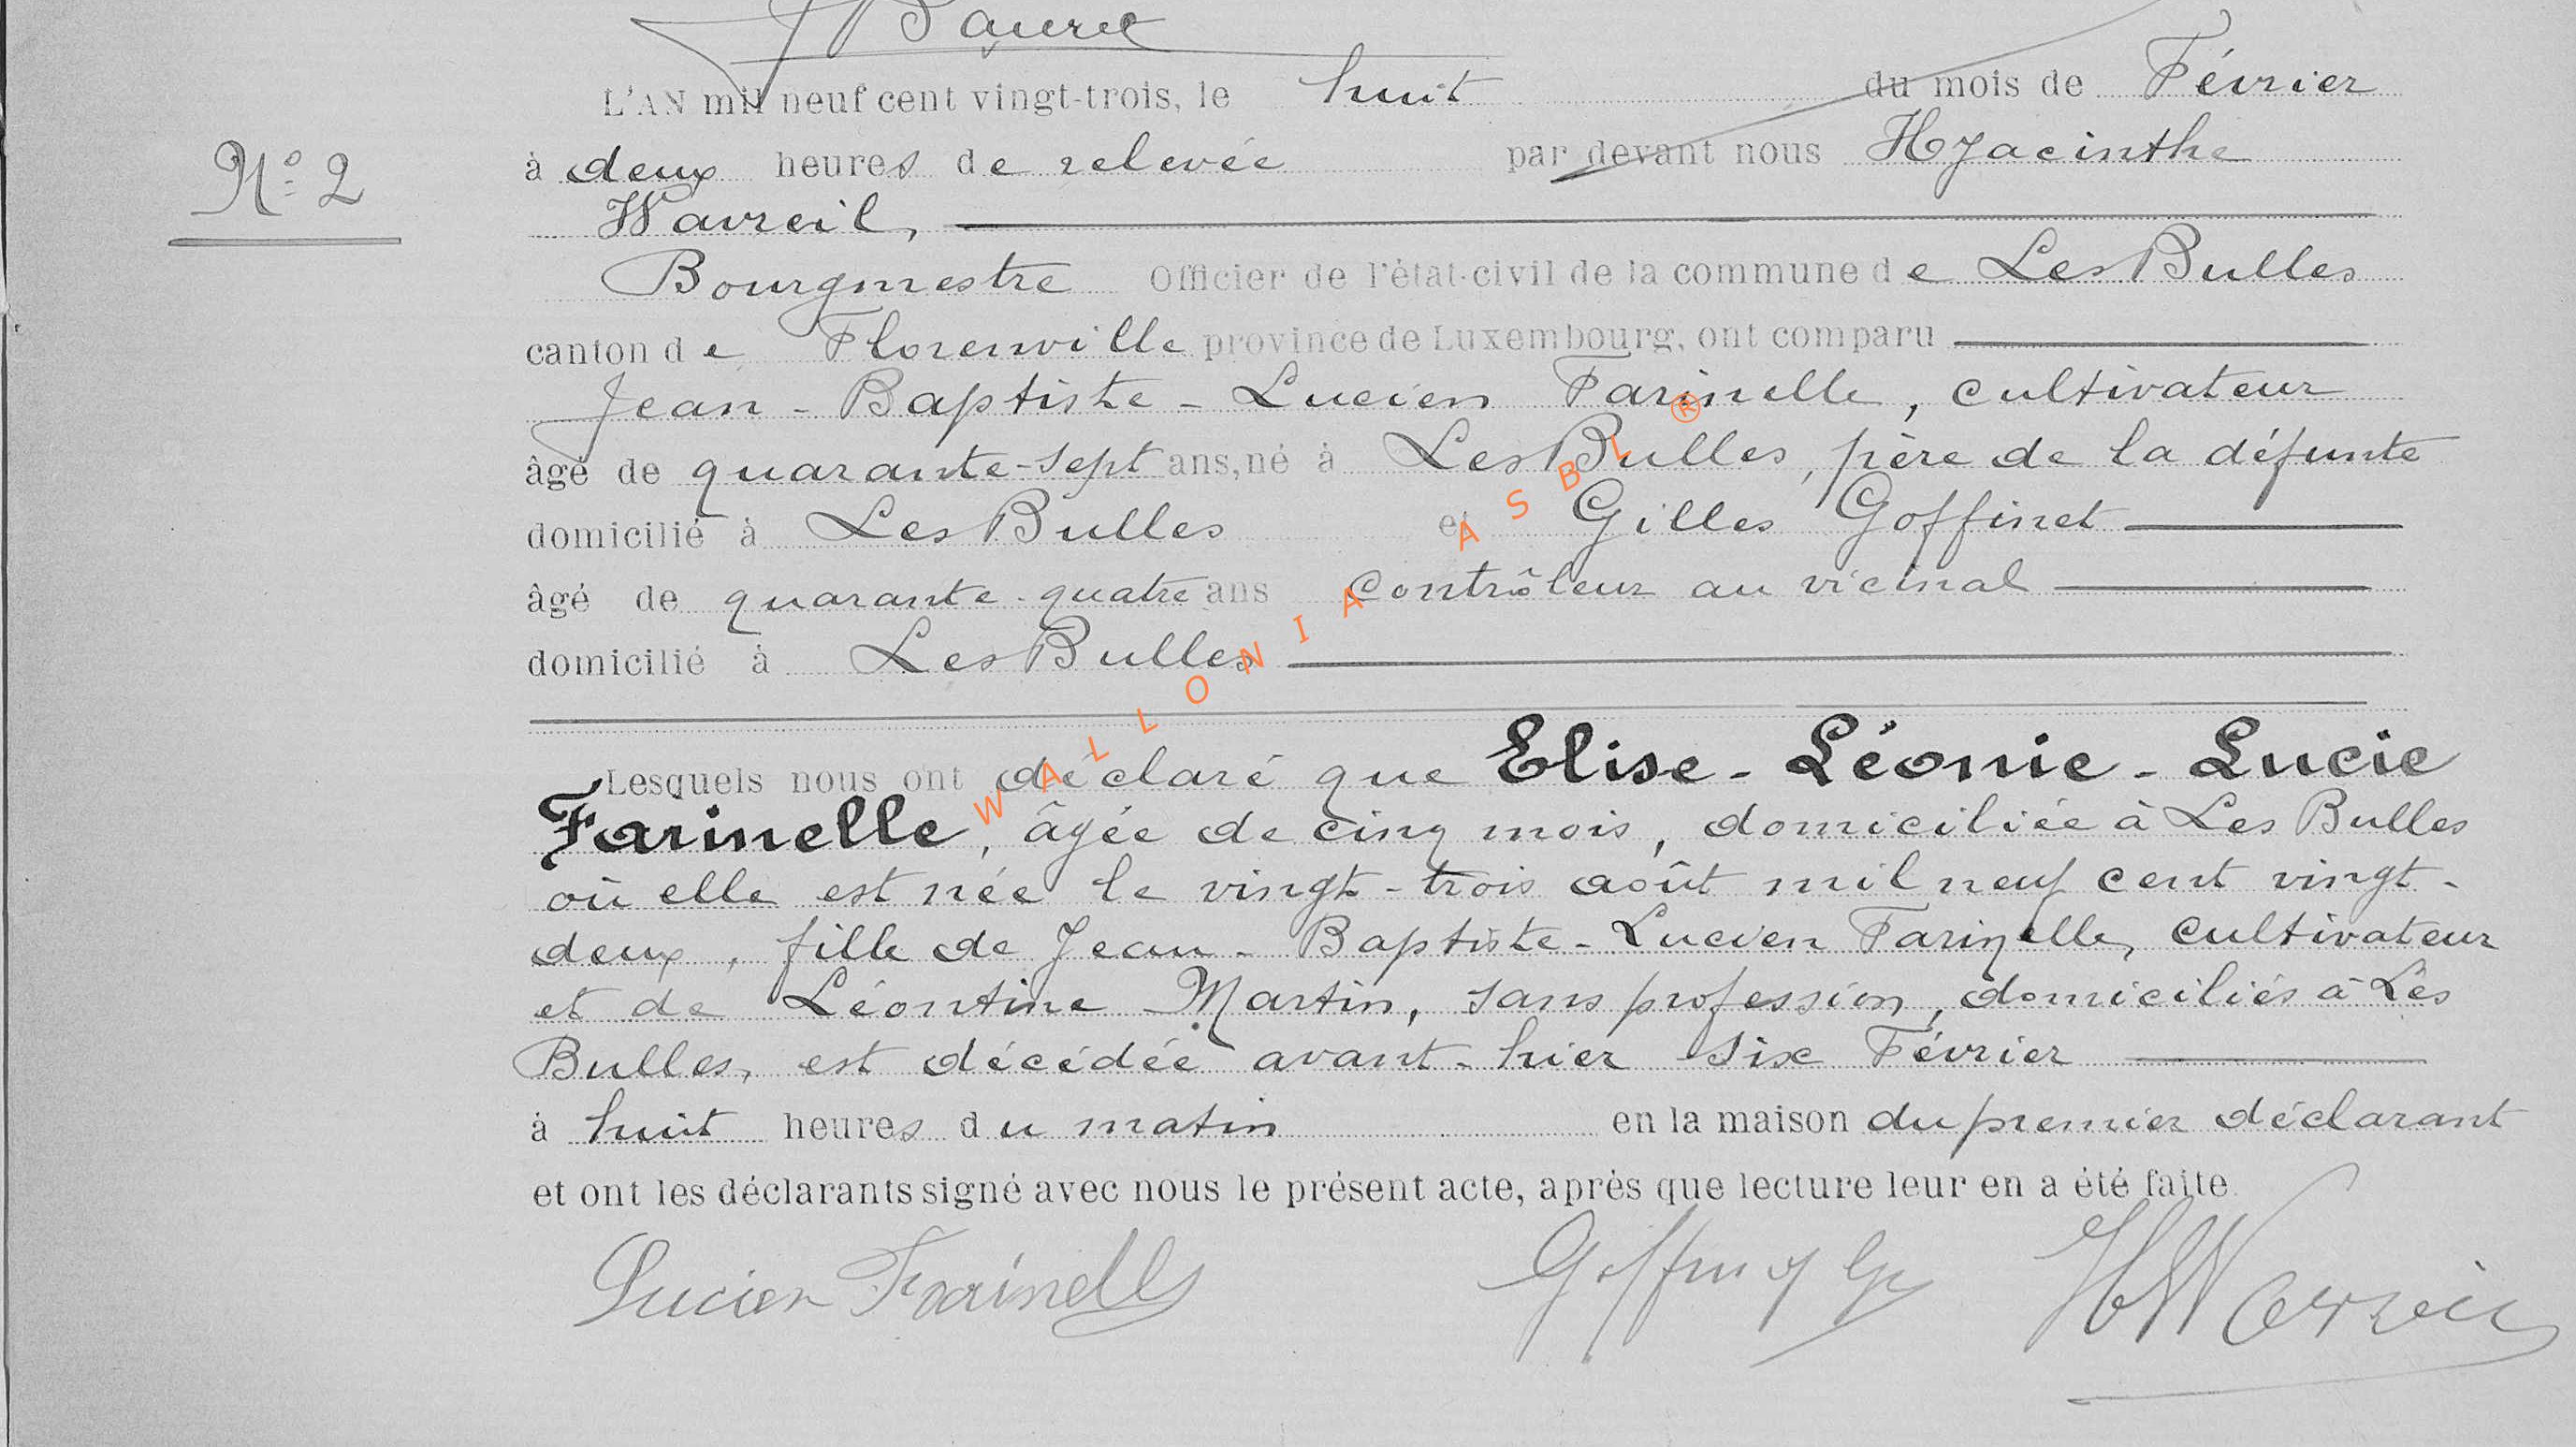 L'AN mil neuf cent vingt-trois, le huit du mois de Février
N° 2
à deux heures de relevée par devant nous Hyacinthe
Wavreil,
Bourgmestre Officier de l'état-civil de la commune de Les Bulles
canton de Florenville province de Luxembourg, ont comparu
Jean-Baptiste-Lucien Farinelle, cultivateur
âgé de quarante-sept ans, né à Les Bulles, père de la défunte
domicilié à Les Bulles et Gilles Goffinet
âgé de quarante-quatre ans contrôleur au vicinal
domicilié à Les Bulles
Lesquels nous ont déclaré que Elise-Léonie-Lucie
Farinelle, âgée de cinq mois, domiciliée à Les Bulles
où elle est née le vingt-trois août mil neuf cent vingt-
deux, fille de Jean-Baptiste-Lucien Farinelle, cultivateur
et de Léontine Martin, sans profession, domiciliés à Les
Bulles, est décédée avant-hier six Février
à huit heures du matin en la maison du premier déclarant
et ont les déclarants signé avec nous le présent acte, après que lecture leur en a été faite
Lucien Farinelle HWavreil
WALLONIA ASBL ®